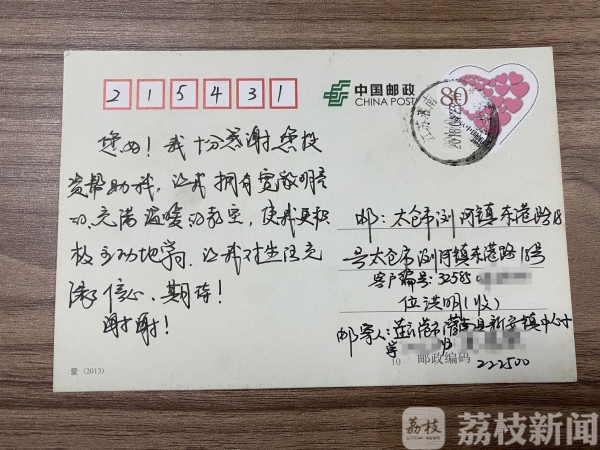 215431
中国邮政
CHINA POST
80
您好！我十分感谢您投
资帮助我，让我拥有宽敞明亮
的、充满温暖的教室，使我更积
极主动地学习。让我对生活充
满了信心、期待！
谢谢！
邮：太仓市浏河镇东港路18
号太仓市浏河镇东港路18号
客户编号：32585
位洪明（收）
邮寄人：连云港市灌南县新安镇中心小
学
邮政编码
222500
爱 (2013)
荔枝
荔枝新闻